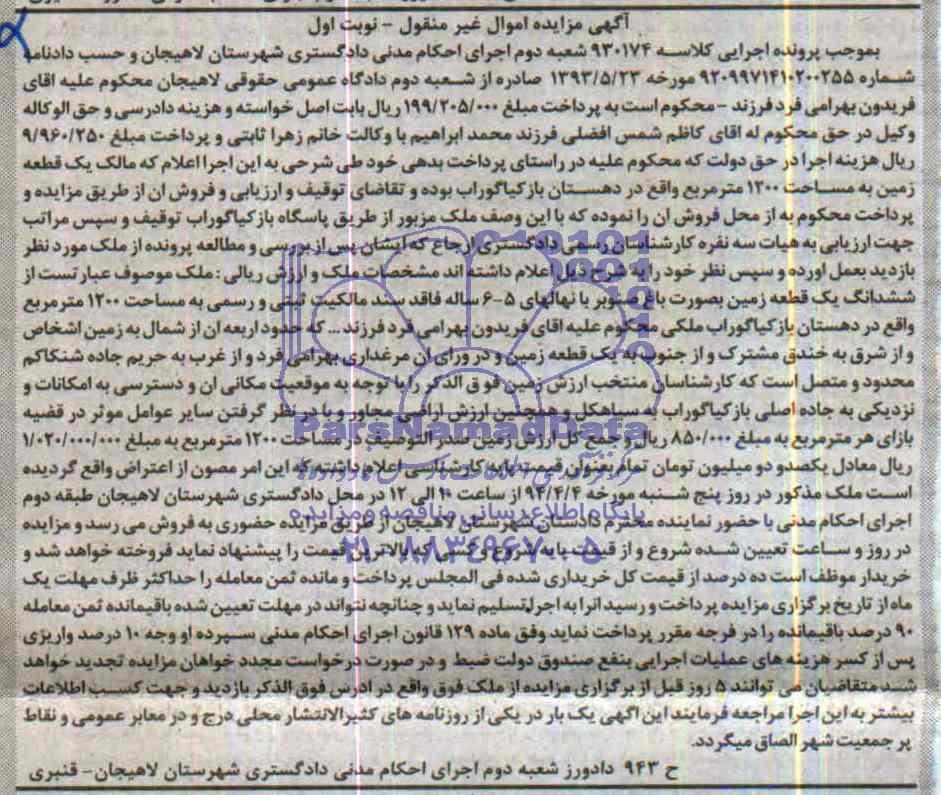 آگهی مزایده اموال غیر منقول - نوبت اول
بموجب پرونده اجرایی کلاسه ۹۳۰۱۷۴ شعبه دوم اجرای احکام مدنی دادگستری شهرستان لاهیجان و حسب دادنامه
شماره ۹۲۰۹۹۷۱۴۱۰۲۰۰۲۵۵ مورخه ۱۳۹۳/۵/۲۳ صادره از شعبه دوم دادگاه عمومی حقوقی لاهیجان محکوم علیه اقای
فریدون بهرامی فرد فرزند - محکوم است به پرداخت مبلغ ۱۹۹/۲۰۵/۰۰۰ ریال بابت اصل خواسته و هزینه دادرسی و حق الوکاله
وکیل در حق محکوم له اقای کاظم شمس افضلی فرزند محمد ابراهیم با وکالت خانم زهرا ثابتی و پرداخت مبلغ ۹/۹۶۰/۲۵۰
ریال هزینه اجرا در حق دولت که محکوم علیه در راستای پرداخت بدهی خود طی شرحی به این اجرا اعلام که مالک یک قطعه
زمین به مساحت ۱۲۰۰ مترمربع واقع در دهستان بازکیاگوراب بوده و تقاضای توقیف و ارزیابی و فروش ان از طریق مزایده و
پرداخت محکوم به از محل فروش ان را نموده که با این وصف ملک مزبور از طریق پاسگاه بازکیاگوراب توقیف و سپس مراتب
جهت ارزیابی به هیات سه نفره کارشناسان رسمی دادگستری ارجاع که ایشان پس از بررسی و مطالعه پرونده از ملک مورد نظر
بازدید بعمل اورده و سپس نظر خود را به شرح ذیل اعلام داشته اند مشخصات ملک و ارزش ریالی : ملک موصوف عبارتست از
ششدانگ یک قطعه زمین بصورت باغ صنوبر با نهالهای ۵-۶ ساله فاقد سند مالکیت ثبتی و رسمی به مساحت ۱۲۰۰ مترمربع
واقع در دهستان بازکیاگوراب ملکی محکوم علیه اقای فریدون بهرامی فرد فرزند ... که حدود اربعه ان از شمال به زمین اشخاص
و از شرق به خندق مشترک و از جنوب به یک قطعه زمین و در ورای ان مرغداری بهرامی فرد و از غرب به حریم جاده شنکاکم
محدود و متصل است که کارشناسان منتخب ارزش زمین فوق الذکر را با توجه به موقعیت مکانی ان و دسترسی به امکانات و
نزدیکی به جاده اصلی بازکیاگوراب به سیاهکل و همچنین ارزش اراضی مجاور و با در نظر گرفتن سایر عوامل موثر در قضیه
بازای هر مترمربع به مبلغ ۸۵۰/۰۰۰ ریال و جمع کل ارزش زمین صدر التوصیف در مساحت ۱۲۰۰ مترمربع به مبلغ ۱/۰۲۰/۰۰۰/۰۰۰
ریال معادل یکصدو دو میلیون تومان تمام بعنوان قیمت پایه کارشناسی اعلام داشته که این امر مصون از اعتراض واقع گردیده
است ملک مذکور در روز پنج شنبه مورخه ۹۴/۴/۴ از ساعت ۱۰ الی ۱۲ در محل دادگستری شهرستان لاهیجان طبقه دوم
اجرای احکام مدنی با حضور نماینده محترم دادستان شهرستان لاهیجان از طریق مزایده حضوری به فروش می رسد و مزایده
در روز و ساعت تعیین شده شروع و از قیمت پایه شروع و کسی که بالاترین قیمت را پیشنهاد نماید فروخته خواهد شد و
خریدار موظف است ده درصد از قیمت کل خریداری شده فی المجلس پرداخت و مانده ثمن معامله را حداکثر ظرف مهلت یک
ماه از تاریخ برگزاری مزایده پرداخت و رسید انرا به اجرا تسلیم نماید و چنانچه نتواند در مهلت تعیین شده باقیمانده ثمن معامله
۹۰ درصد باقیمانده را در فرجه مقرر پرداخت نماید وفق ماده ۱۲۹ قانون اجرای احکام مدنی سپرده او وجه ۱۰ درصد واریزی
پس از کسر هزینه های عملیات اجرایی بنفع صندوق دولت ضبط و در صورت درخواست مجدد خواهان مزایده تجدید خواهد
شد متقاضیان می توانند ۵ روز قبل از برگزاری مزایده از ملک فوق واقع در ادرس فوق الذکر بازدید و جهت کسب اطلاعات
بیشتر به این اجرا مراجعه فرمایند این اگهی یک بار در یکی از روزنامه های کثیرالانتشار محلی درج و در معابر عمومی و نقاط
پر جمعیت شهر الصاق میگردد.
ح ۹۴۳ دادورز شعبه دوم اجرای احکام مدنی دادگستری شهرستان لاهیجان- قنبری
ParsNamadData
پایگاه اطلاع رسانی مناقصه و مزایده
۰۲۱-۸۸۳۴۹۶۷۰-۵